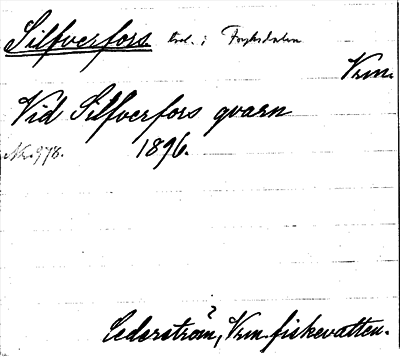 Silfverfors trol. i Fryksdalen
Vrm.
Vid Silfverfors qvarn
Nr. 978. 1896.
?
Cederström, Vrm. fiskevatten.